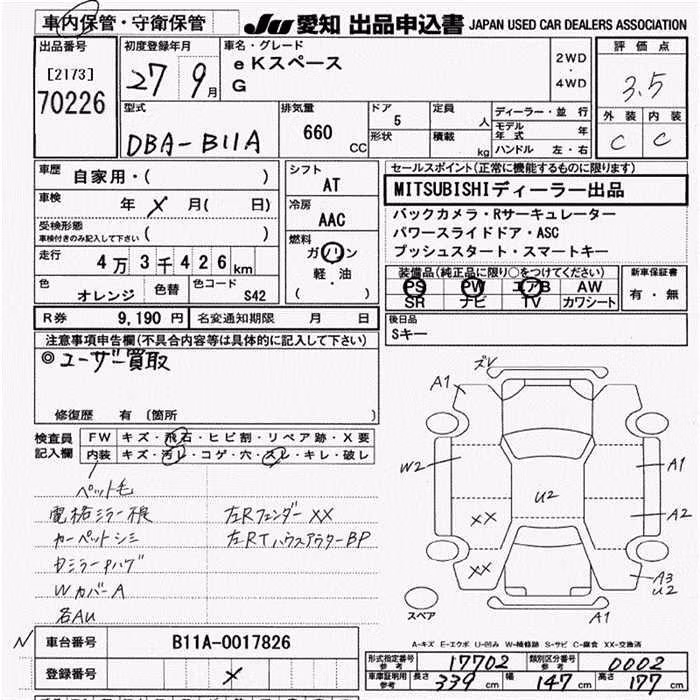 車内保管・守衛保管
JU 愛知 出品申込書 JAPAN USED CAR DEALERS ASSOCIATION
出品番号
[2173]
70226
初度登録年月
27 9月
車名・グレード
eKスペース
G
2WD
・
4WD
評価点
3.5
外装 内装
C C
型式
DBA-B11A
排気量
660 CC
ドア 5
形状
定員 人
積載 kg
ディーラー・並行
モデル年式 年
ハンドル 左・右
車歴 自家用・( )
車検 年 メ 月( 日)
受検形態
車検付きのみ記入して下さい ( )
走行 4万3千426km
色 オレンジ 色替 色コード S42
シフト
AT
冷房
AAC
燃料
ガソリン
軽・油
( )
セールスポイント(正常に機能するものに限ります)
MITSUBISHIディーラー出品
バックカメラ・Rサーキュレーター
パワースライドドア・ASC
プッシュスタート・スマートキー
装備品(純正品に限り○をつけてください)
PS PW エアB AW
SR ナビ TV カワシート
新車保証書
有・無
R券 9,190円 名変通知期限 月 日
後日品
Sキー
注意事項申告欄(不具合内容等は具体的に記入して下さい)
◎ユーザー買取
修復歴 有 (箇所 )
検査員記入欄
FW キズ・飛石・ヒビ割・リペア跡・X要
内装 キズ・汚レ・コゲ・穴・スレ・キレ・破レ
ペット毛
電格ミラー不良 左Rフェンダー XX
カーペットシミ 左RTハウスアウターBP
Wカバー A
各AU
ズレ
A1
W2
A1
U2
XX
A2
XX
A3
U2
A1
スペア
A-キズ E-エクボ U-凹み W-補修跡 S-サビ C-腐食 XX-交換済
N 車台番号 B11A-0017826
登録番号 メ
形式指定番号 参考 17702 類別区分番号 参考 0002
車庫証明用参考 長さ 339cm 幅 147cm 高さ 177cm